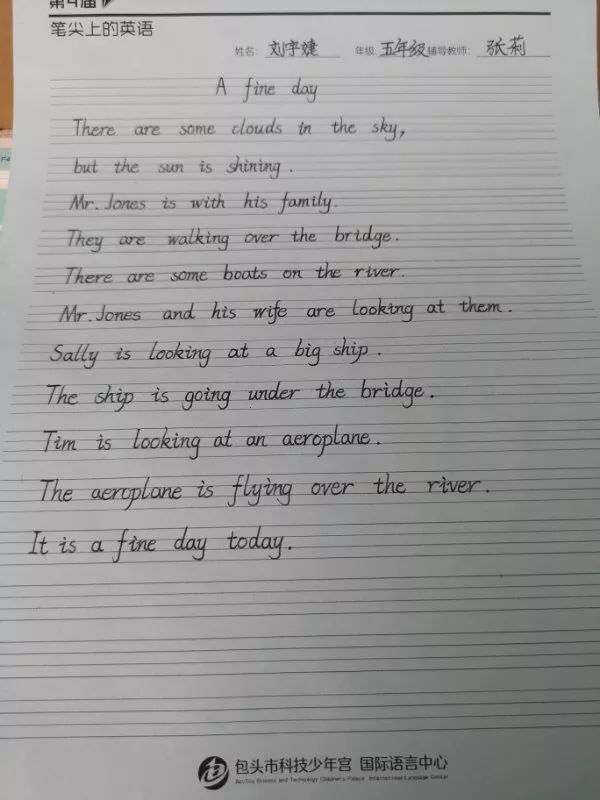 第4届
笔尖上的英语
姓名: 刘宇婕 年级: 五年级 辅导教师: 张莉
A fine day
There are some clouds in the sky,
but the sun is shining.
Mr. Jones is with his family.
They are walking over the bridge.
There are some boats on the river.
Mr. Jones and his wife are looking at them.
Sally is looking at a big ship.
The ship is going under the bridge.
Tim is looking at an aeroplane.
The aeroplane is flying over the river.
It is a fine day today.
包头市科技少年宫 国际语言中心
BaoTou Science and Technology Children's Palace International Language Center